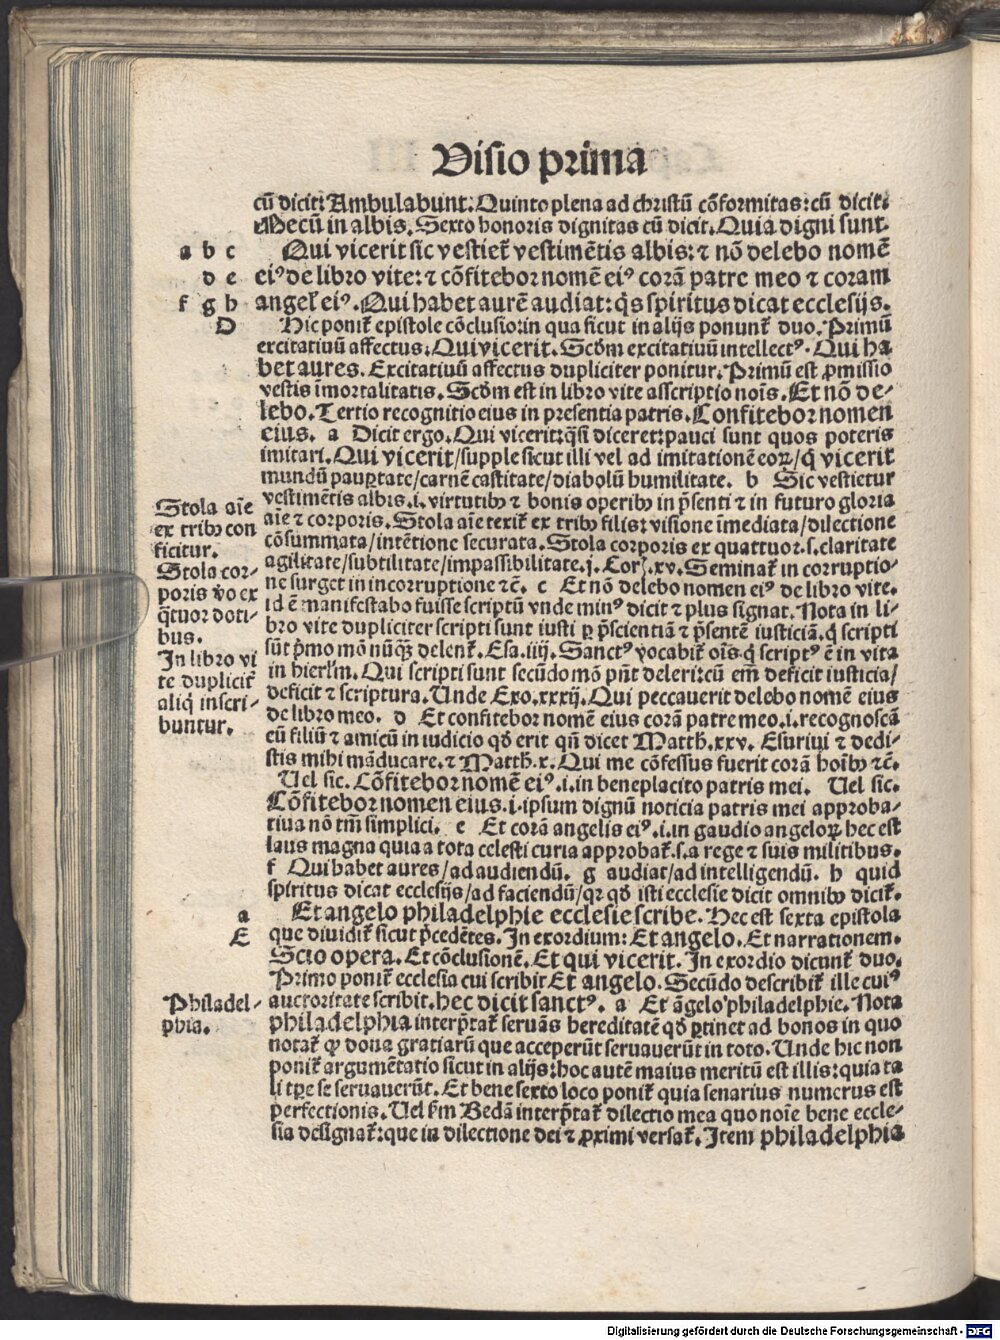 Visio prima
cū dicit: Ambulabunt. Quinto plena ad christū cōformitas: cū dicit.
Mecū in albis. Sexto honoris dignitas cū dicit. Quia digni sunt.
a b c Qui vicerit sic vestiet᷑ vestimētis albis: ⁊ nō delebo nomē
d e eiꝰ de libro vite: ⁊ cōfitebor nomē eiꝰ corā patre meo ⁊ coram
f g h angel᷑ eiꝰ. Qui habet aurē audiat: q̄s spiritus dicat ecclesijs.
D Hic ponit᷑ epistole cōclusio: in qua sicut in alijs ponunt᷑ duo. Primū
excitatiuū affectus: Qui vicerit. Scd̄m excitatiuū intellectꝰ. Qui ha
bet aures. Excitatiuū affectus dupliciter ponitur. Primū est ꝓmissio
vestis īmortalitatis. Scd̄m est in libro vite asscriptio noīs. Et nō de-
lebo. Tertio recognitio eius in presentia patris. Confitebor nomen
eius. a Dicit ergo. Qui vicerit: q̄si diceret: pauci sunt quos poteris
imitari. Qui vicerit/supple sicut illi vel ad imitationē eoꝝ/q̇ vicerit
mundū paup̱tate/carnē castitate/diabolū humilitate. b Sic vestietur
vestimētis albis .i. virtutibꝫ ⁊ bonis operibꝫ in p̄senti ⁊ in futuro gloria
aīe ⁊ corporis. Stola aīe texit᷑ ex tribꝫ filis: visione īmediata/dilectione
cōsummata/intētione securata. Stola corporis ex quattuor .s. claritate
agilitate/subtilitate/impassibilitate. j. Cor̄. xv. Seminat᷑ in corruptio-
ne surget in incorruptione ⁊c̄. c Et nō delebo nomen eiꝰ de libro vite.
id ē manifestabo fuisse scriptū vnde minꝰ dicit ⁊ plus signat. Nota in li-
bro vite dupliciter scripti sunt iusti ꝑ p̄scientiā ⁊ p̄sentē iusticiā. q̇ scripti
sūt p̄mo mō nūqꝫ delent᷑. Esa. iiij. Sanctꝰ vocabit᷑ oīs q̇ scriptꝰ ē in vita
in hierl᷑m. Qui scripti sunt secūdo mō pn̄t deleri: cū em̄ deficit iusticia/
deficit ⁊ scriptura. Unde Exo. xxxij. Qui peccauerit delebo nomē eius
de libro meo. d Et confitebor nomē eius corā patre meo .i. recognoscā
eū filiū ⁊ amicū in iudicio qd̄ erit qn̄ dicet Matth. xxv. Esuriui ⁊ dedi-
stis mihi māducare. ⁊ Matth. x. Qui me cōfessus fuerit corā hoībꝫ ⁊c̄.
Uel sic. Cōfitebor nomē eiꝰ .i. in beneplacito patris mei. Uel sic.
Cōfitebor nomen eius .i. ipsum dignū noticia patris mei approba-
tiua nō tm̄ simplici. e Et corā angelis eiꝰ .i. in gaudio angeloꝝ hec est
laus magna quia a tota celesti curia approbat᷑ .s. a rege ⁊ suis militibus.
f Qui habet aures/ad audiendū. g audiat/ad intelligendū. h quid
spiritus dicat ecclesijs/ad faciendū/qꝛ qd̄ isti ecclesie dicit omnibꝫ dicit᷑.
a Et angelo philadelphie ecclesie scribe. Hec est sexta epistola
E que diuidit᷑ sicut p̄cedētes. In exordium: Et angelo. Et narrationem.
Scio opera. Et cōclusionē. Et qui vicerit. In exordio dicunt᷑ duo.
Primo ponit᷑ ecclesia cui scribit Et angelo. Secūdo describit᷑ ille cuiꝰ
auctoritate scribit. hec dicit sanctꝰ. a Et āgelo philadelphie. Nota
philadelphia interp̄tat᷑ seruās hereditatē qd̄ ꝑtinet ad bonos in quo
notat᷑ ꝙ dona gratiarū que acceperūt seruauerūt in toto. Unde hic non
ponit᷑ argumētatio sicut in alijs: hoc autē maius meritū est illis: quia ta
li tꝑe se seruauerūt. Et bene sexto loco ponit᷑ quia senarius numerus est
perfectionis. Uel s̄m Bedā interp̄tat᷑ dilectio mea quo noīe bene eccle-
sia designat᷑: que in dilectione dei ⁊ ꝓximi versat᷑. Item philadelphia
Stola aīe
ex tribꝫ con
ficitur.
Stola cor-
poris v̇o ex
q̄tuor doti-
bus.
In libro vi
te duplicit᷑
aliq̇ inscri-
buntur.
Philadel-
phia.
Digitalisierung gefördert durch die Deutsche Forschungsgemeinschaft - DFG